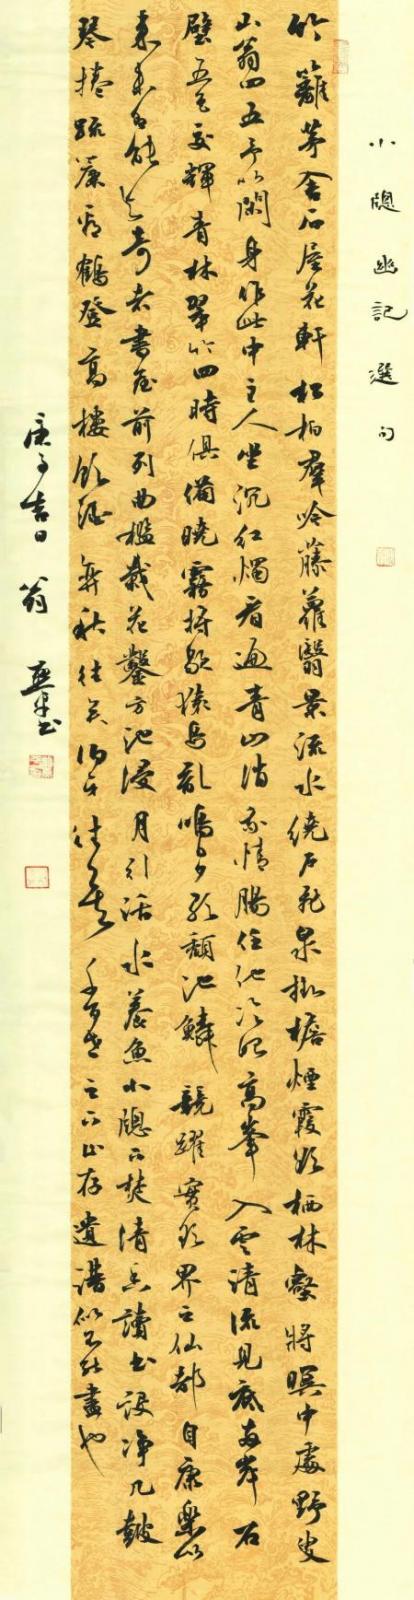 小牕幽記選句
竹籬茅舍石屋花軒松柏群吟藤蘿翳景流水繞戶飛泉掛檐煙霞欲栖林壑將暝中處野叟
山翁四五予以閑身作此中主人坐沉紅燭看遍青山消我情腸任他冷眼高峯入雲清流見底兩岸石
壁五色交輝青林翠竹四時俱備曉霧將歇猿鳥亂鳴夕日欲頹池鱗競躍實欲界之仙都自康樂以
來未有能與奇者書屋前列曲檻栽花鑿方池浸月引活水養魚小牕下焚清香讀書設净几鼓
琴捲疏簾看鶴登高樓飲酒弈秋往矣伯牙往矣千百世之下止存遺譜似不能盡也
庚子吉日 翁 書